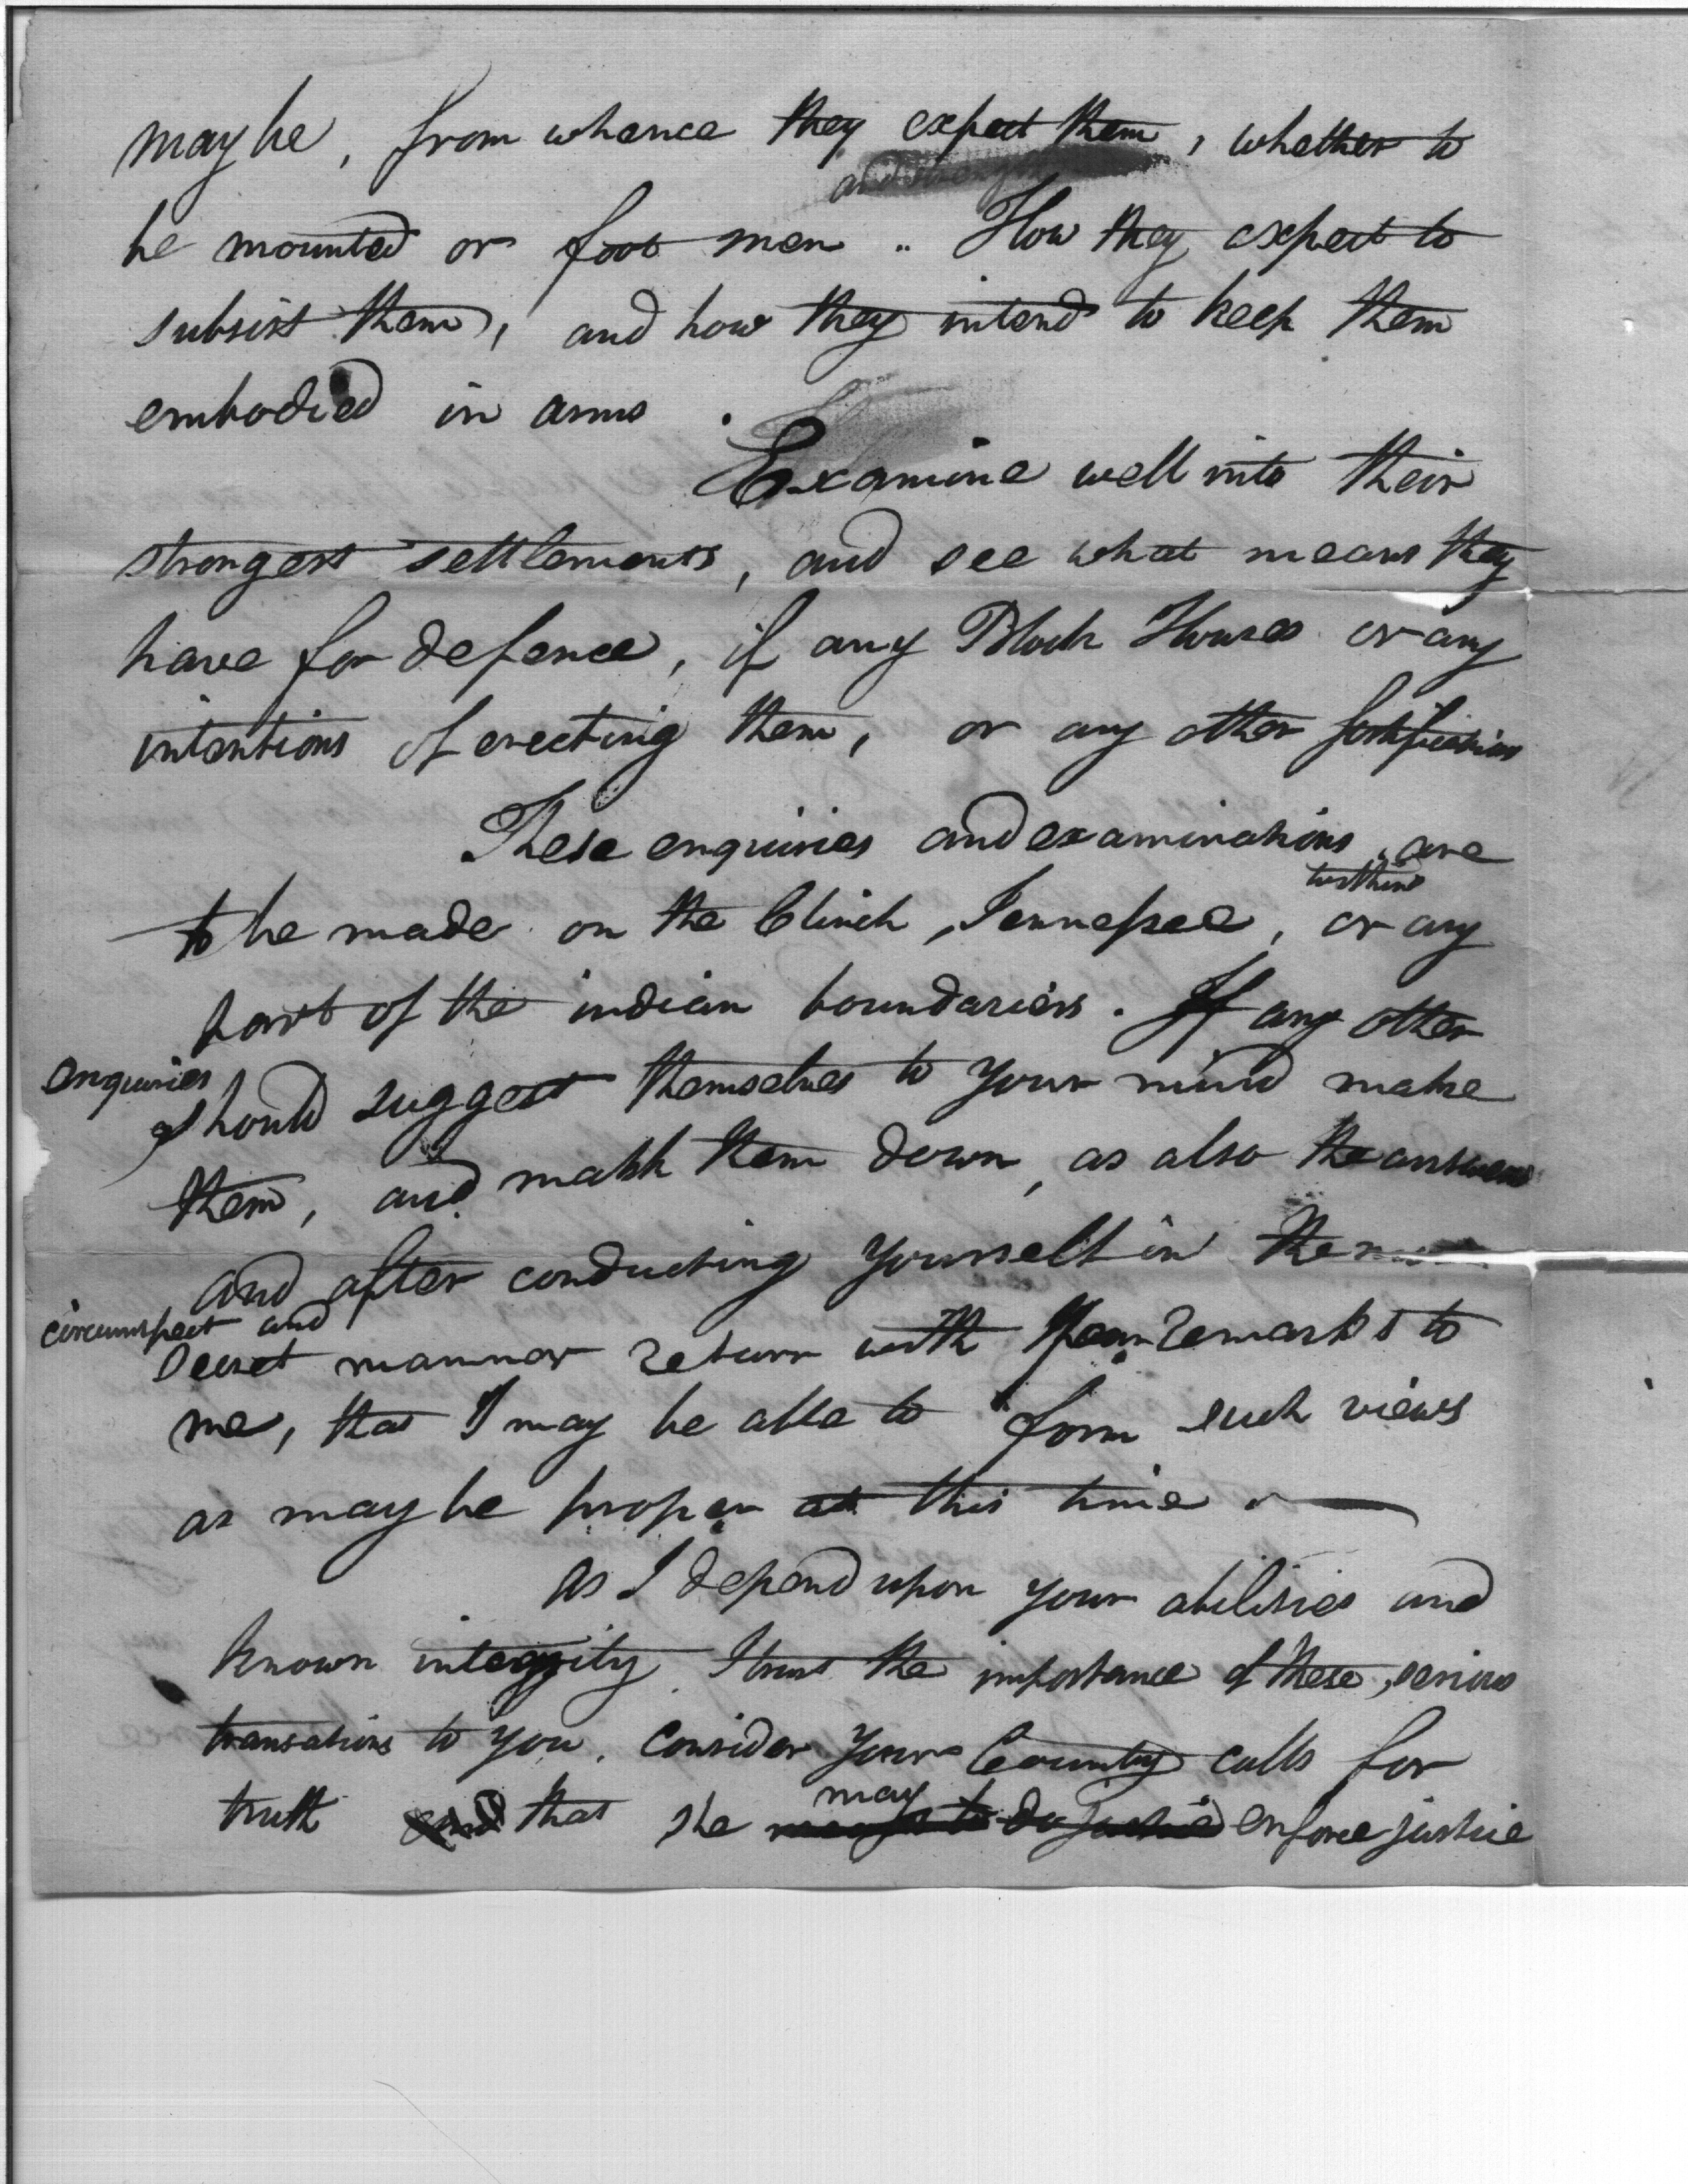 may be, from whence they expect them, whether to
and strength
be mounted or foot men .. How they expect to
subsist them, and how they intend to keep them
embodied in arms .
Examine well into their
strongest settlements, and see what means they
have for defence, if any Block Houses or any
intentions of erecting them, or any other fortifications
These enquiries and examinations are
within
to be made on the Clinch, Tennessee, or any
part of the indian boundaries. If any other
enquiries
should suggest themselves to your mind make
them, and mark them down, as also the answers
and after conducting yourself in the
circumspect and
secret manner return with your remarks to
me, that I may be able to form such views
as may be proper at this time
As I depend upon your abilities and
known integrity I trust the importance of these serious
transations to you. Consider your Country calls for
truth and that she may enforce justice